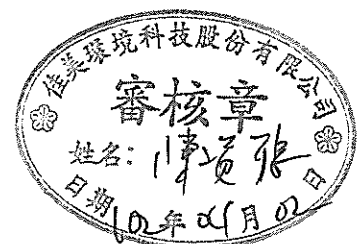 佳美環境科技股份有限公司
審核章
姓名:
日期102年04月02日